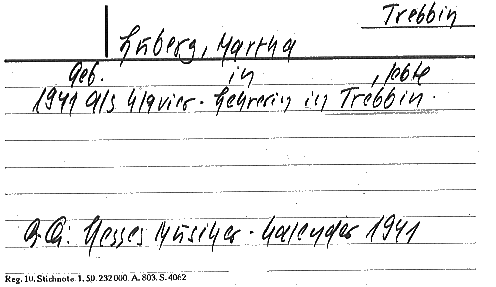 Trebbin
Luberg, Martha
Geb. in , lebte
1941 als Klavier-Lehrerin in Trebbin.
Q.Q: Hesses Musiker-Kalender 1941
Reg. 10. Stichnote. 1. 50. 232 000. A. 803. S. 4062